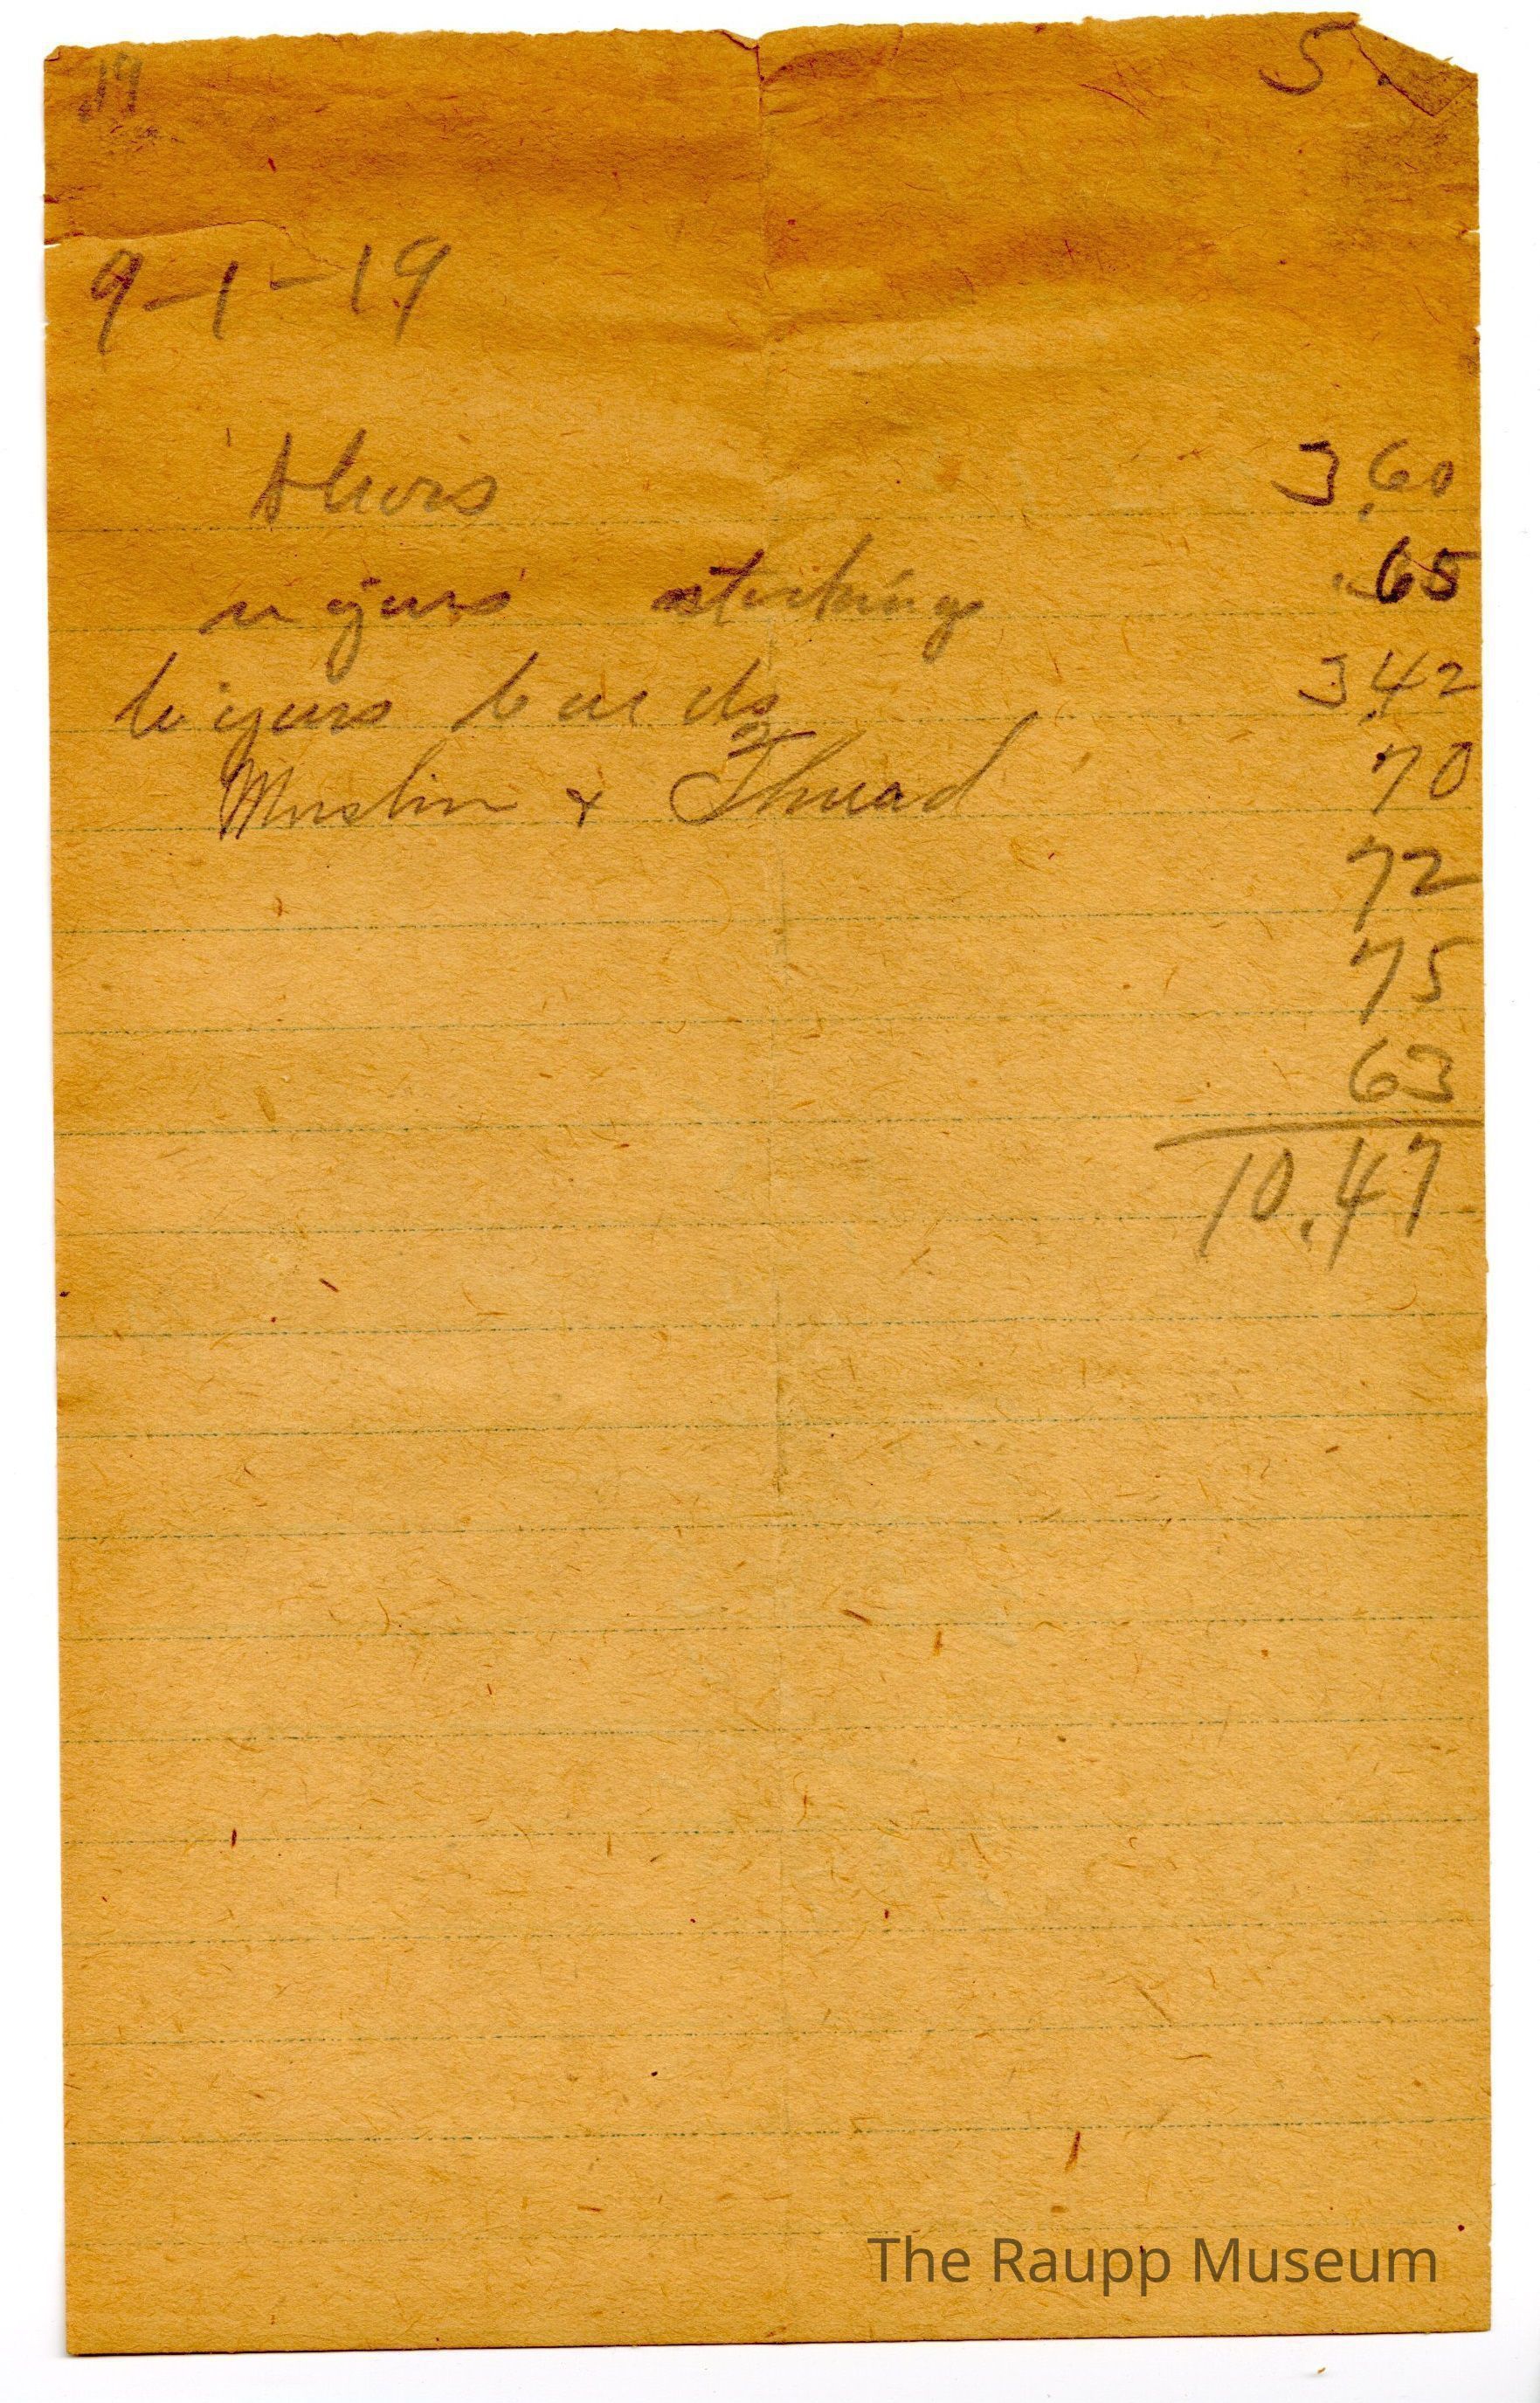 19 5
9-1-19
shoes 3.60
stockings .65
3.42
Muslin & Thread 70
72
75
63
10.47
The Raupp Museum